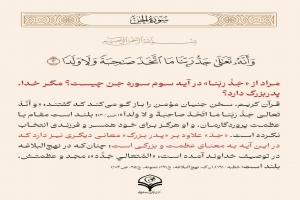 سورة الجن
وَأَنَّهُ تَعَالَىٰ جَدُّ رَبِّنَا مَا اتَّخَذَ صَاحِبَةً وَلَا وَلَدًا
مراد از «جَدُّ رَبِّنا» در آیه سوم سوره جن چیست؟ مگر خدا،
پدربزرگ دارد؟
قرآن کریم، سخن جنیان مؤمن را بازگو می‌کند که گفتند: «و أنّهُ
تعالى جَدُّ رَبِّنا مَا اتَّخَذَ صاحبةً و لا ولداً» بلند است مقام با
عظمت پروردگارمان، و او هرگز برای خود همسر و فرزندی انتخاب
نکرده است. «جد» علاوه بر «پدر بزرگ» معانی دیگری نیز دارد که
در این آیه به معنای عظمت و بزرگی است؛ چنان‌که در نهج‌البلاغه
در توصیف خداوند آمده است، «المُتَعالي جَدُّه»، مجد و عظمتش،
بلند است؛